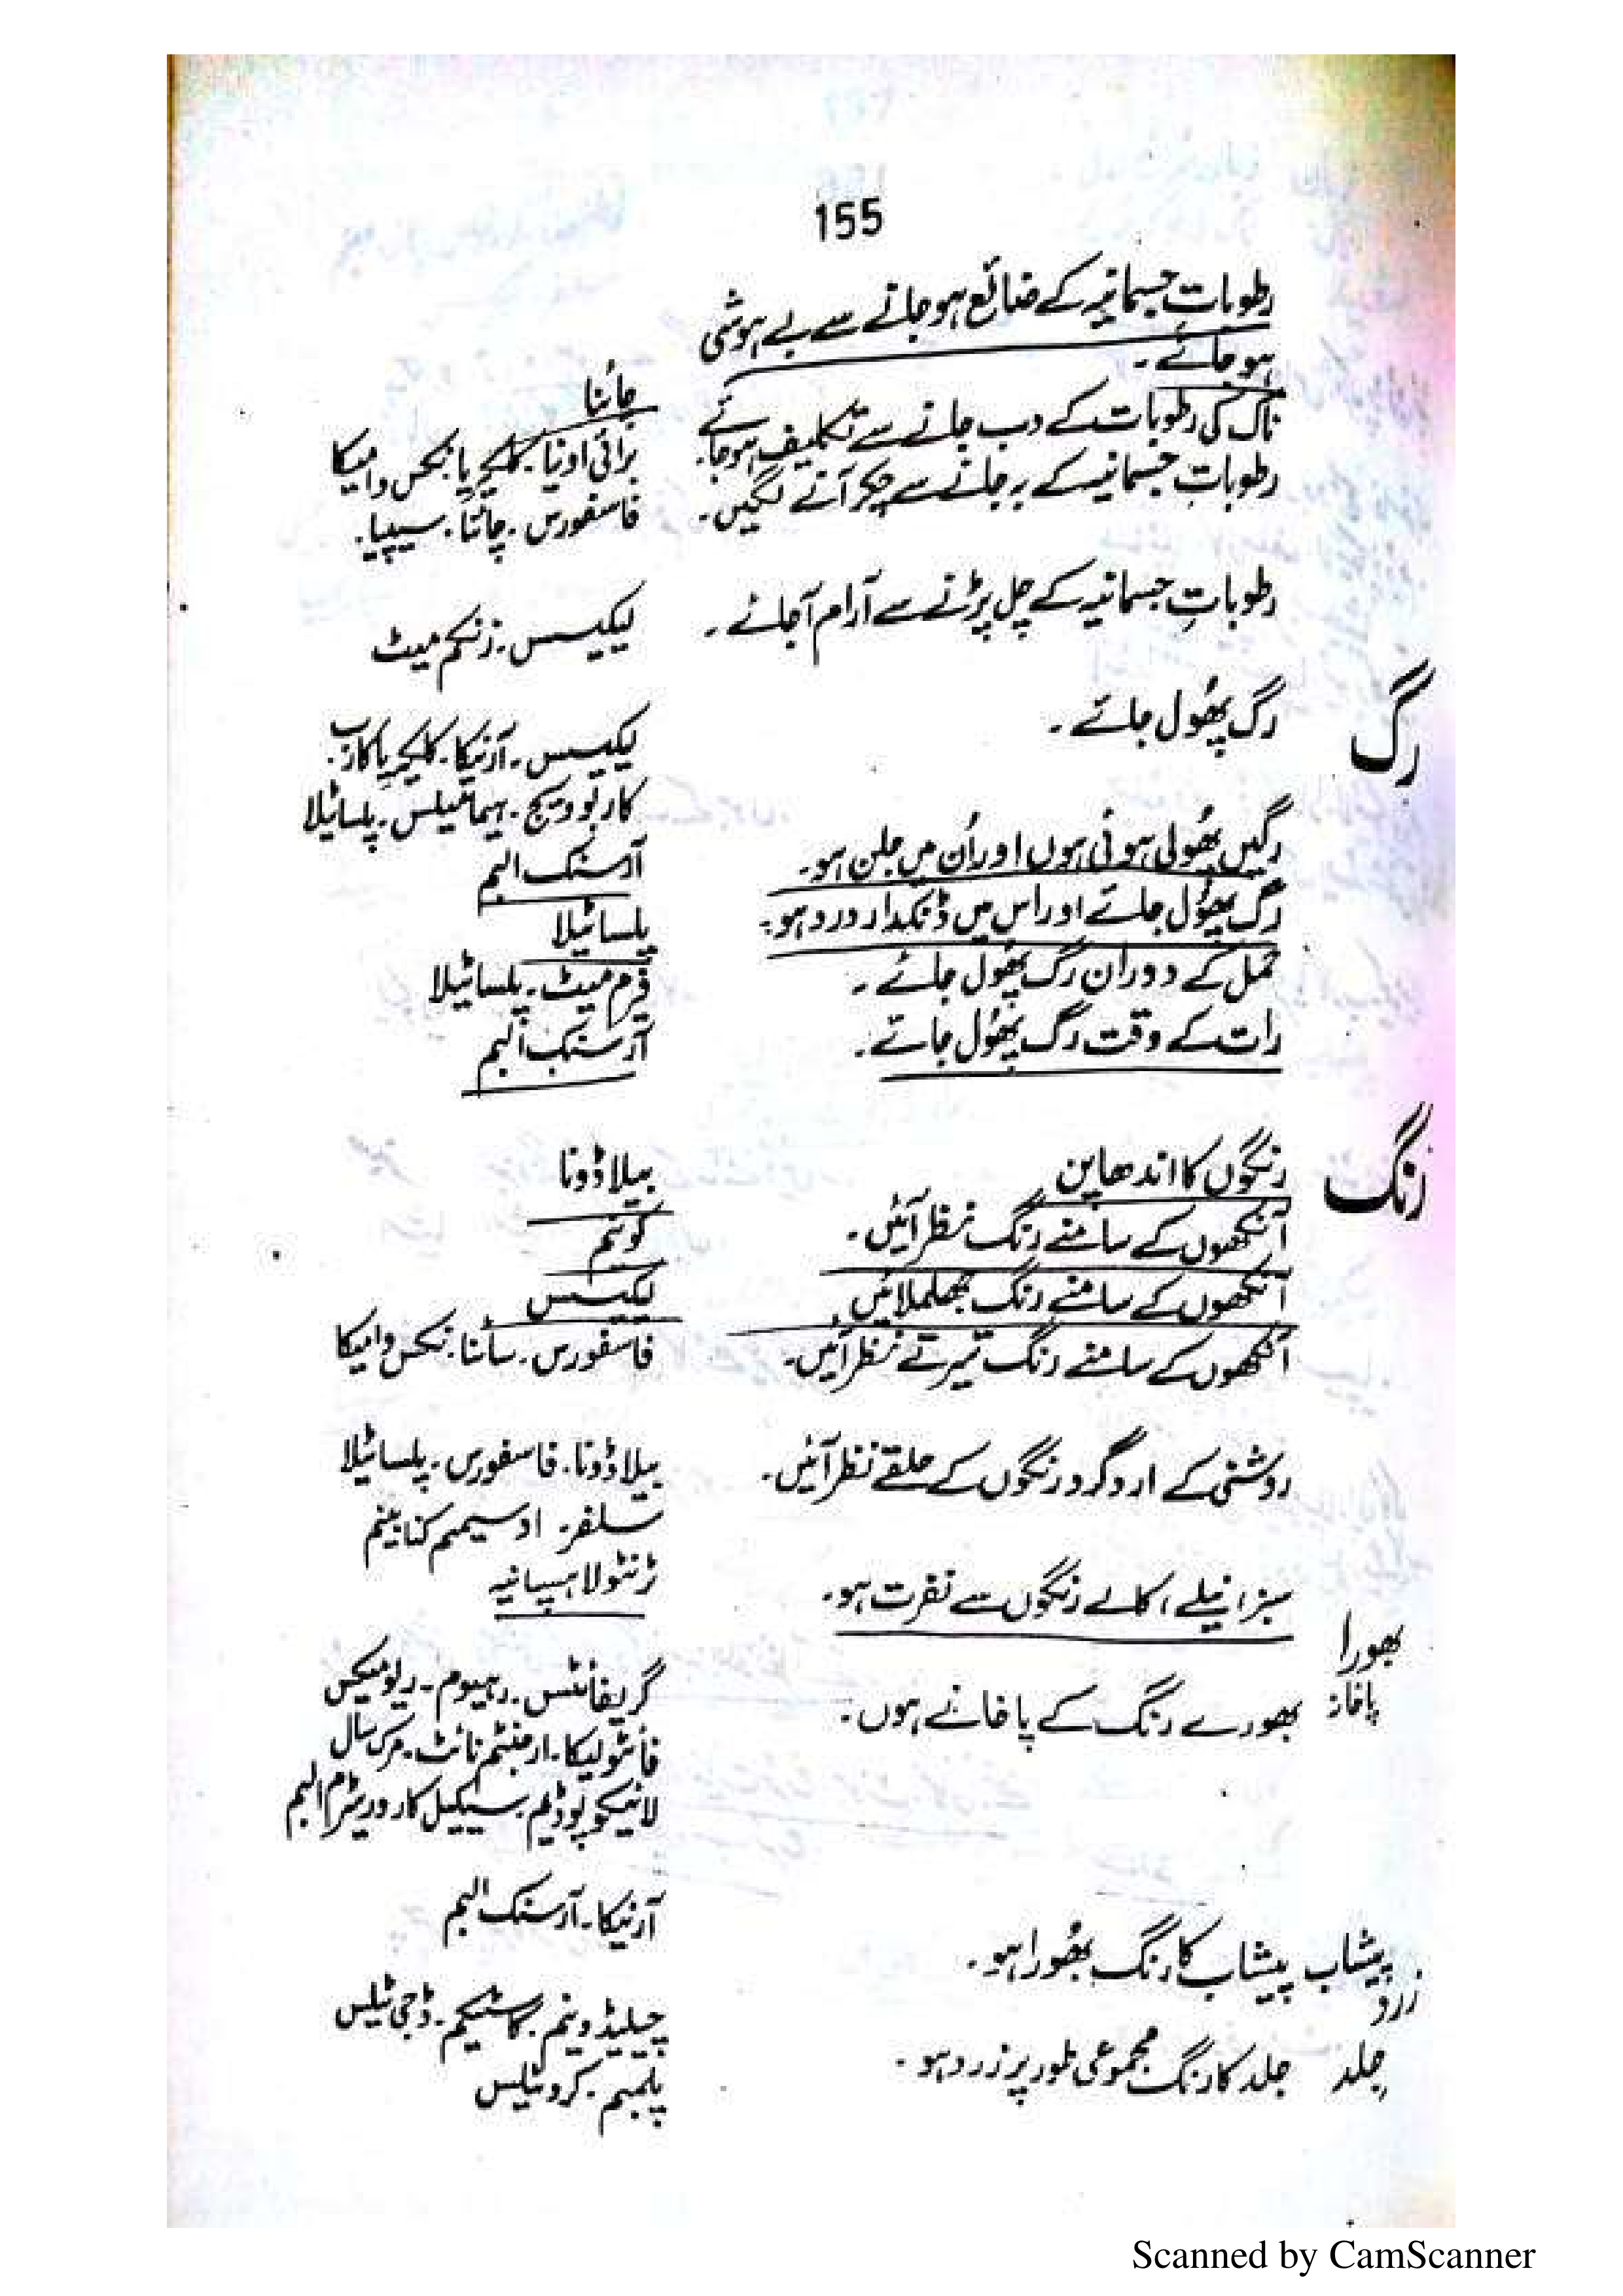 155
رطوباتِ جسمانیہ کے ضائع ہو جانے سے بے ہوشی
ہو جائے ۔
چائنا
ناک کی رطوبات کے دب جانے سے تکلیف ہو جائے
برائی اونیا ۔ کلکیریا ۔ نکس وامیکا
رطوباتِ جسمانیہ کے بہ جانے سے چکر آنے لگیں ۔
فاسفورس ۔ چائنا ۔ سیپیا ۔
رطوباتِ جسمانیہ کے چل پڑنے سے آرام آجائے ۔
لیکیسس ۔ زنکم میٹ
رگ
رگ پھُول جائے ۔
لیکیسس ۔ آرنیکا ۔ کلکیریا کارب ۔
کاربو ویج ۔ ہیمامیلس ۔ پلساٹیلا
رگیں پھُولی ہوئی ہوں اور اُن میں جلن ہو ۔
آرسنک البم
رگ پھُول جائے اور اس میں ڈنکدار درد ہو ۔
پلساٹیلا
حمل کے دوران رگ پھُول جائے ۔
فرم میٹ ۔ پلساٹیلا
رات کے وقت رگ پھُول جائے ۔
آرسنک البم
رنگ
رنگوں کا اندھاپن
بیلاڈونا
آنکھوں کے سامنے رنگ نظر آئیں ۔
کونیم
آنکھوں کے سامنے رنگ جھلملائیں
لیکیسس
آنکھوں کے سامنے رنگ تیرتے نظر آئیں ۔
فاسفورس ۔ سائنا ۔ نکس وامیکا
روشنی کے اردگرد رنگوں کے حلقے نظر آئیں ۔
بیلاڈونا ۔ فاسفورس ۔ پلساٹیلا
سلفر ۔ اوسیمم کنابینم
سبز، نیلے، کالے رنگوں سے نفرت ہو ۔
ٹرنٹولا ہسپانیہ
بھورا
پاخانہ
بھورے رنگ کے پاخانے ہوں ۔
گریفائٹس ۔ رہیوم ۔ ریومیکس
فائٹولیکا ۔ ارجنٹم نائٹ ۔ مرک سال
لائیکوپوڈیم ۔ سیکیل کار وریٹرم البم
پیشاب پیشاب کا رنگ بھُورا ہو ۔
آرنیکا ۔ آرسنک البم
زرد
جِلد جلد کا رنگ مجموعی طور پر زرد ہو ۔
چیلیڈونیم ۔ کاسٹیکم ۔ ڈجی ٹیلس
پلمبم ۔ کروٹیلس
Scanned by CamScanner